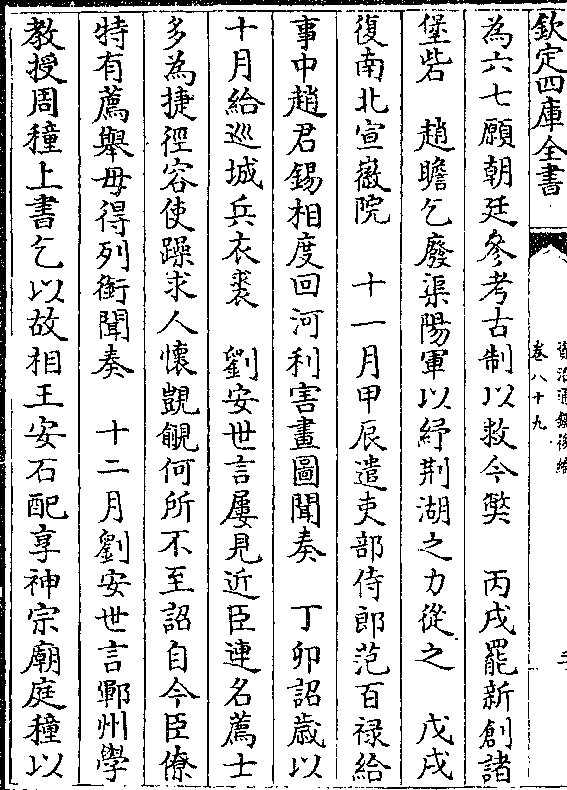 欽定四庫全書
資治通鑑後編
卷八十九
為六七願朝廷參考古制以救今獘　丙戌罷新創諸
堡砦　趙瞻乞廢渠陽軍以紓荆湖之力從之　戊戌
復南北宣徽院　十一月甲辰遣吏部侍郎范百禄給
事中趙君錫相度回河利害畫圖聞奏　丁卯詔歲以
十月給巡城兵衣裘　劉安世言屢見近臣連名薦士
多為捷徑容使躁求人懷覬覦何所不至詔自今臣僚
特有薦舉毋得列銜聞奏　十二月劉安世言鄆州學
教授周穜上書乞以故相王安石配享神宗廟庭穜以